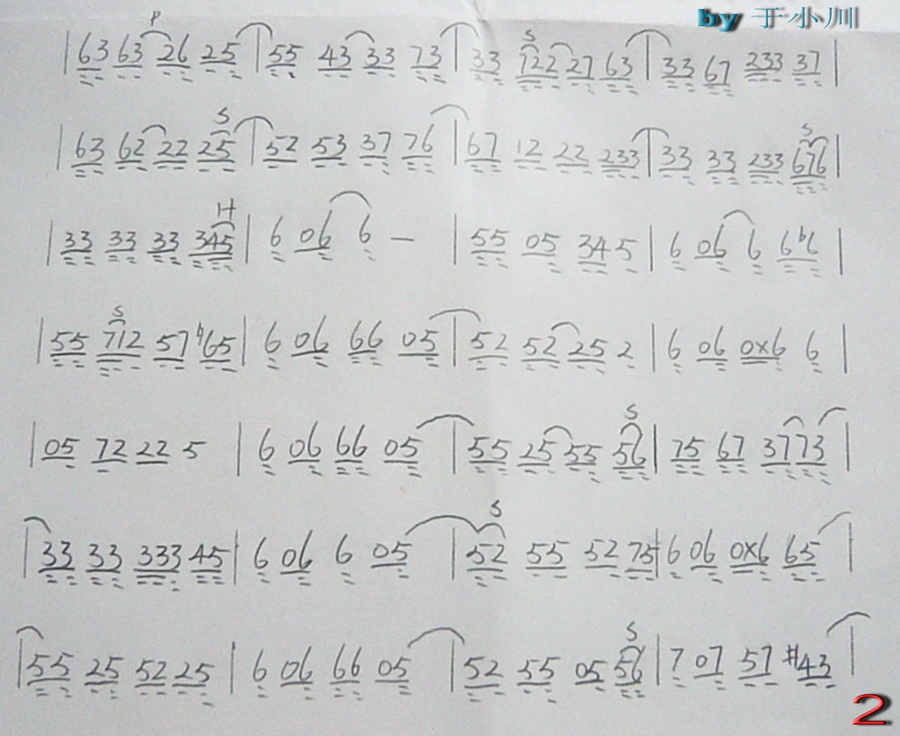 by 于小川
P
|63 63 26 25|55 43 33 73|33 722 27 63|33 67 233 37|
S
|63 62 22 25|52 53 37 76|67 12 22 233|33 33 233 676|
S S
|33 33 33 345|6 06 6 —|55 05 34 5|6 06 6 6b6|
H
|55 712 57 ♮65|6 06 66 05|52 52 25 2|6 06 0x6 6|
S
|05 72 22 5|6 06 66 05|55 25 55 56|75 67 3773|
S
|33 33 333 45|6 06 6 05|52 55 52 75|6 06 0x6 65|
S
|55 25 52 25|6 06 66 05|52 55 05 56|7 07 57 #43|
S
2